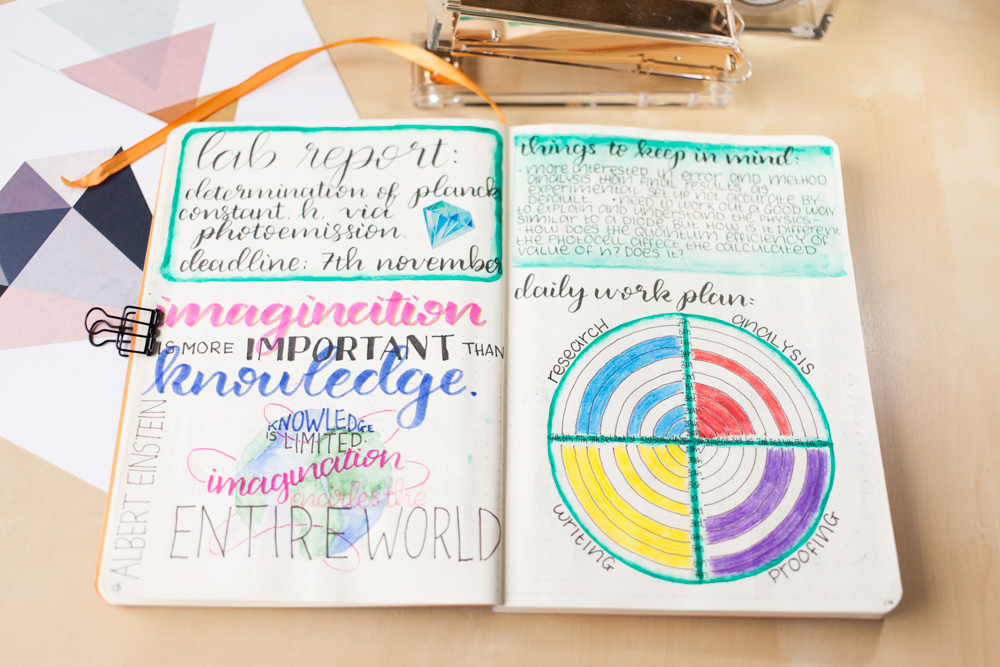 lab report:
determination of planck
constant, h, via
photoemission.
deadline: 7th november
imagination
IS MORE IMPORTANT THAN
knowledge.
KNOWLEDGE
IS LIMITED.
imagination
the
ENTIRE WORLD
ALBERT EINSTEIN
things to keep in mind:
· more interested in error and method
analysis than final results as
experimental set up not accurate by
default · need to work out a good way
to explain and understand the physics-
similar to a diode but how is it different
· how does the quantum efficiency of
the photocell affect the calculated
value of h? Does it?
daily work plan:
research
analysis
writing
proofing